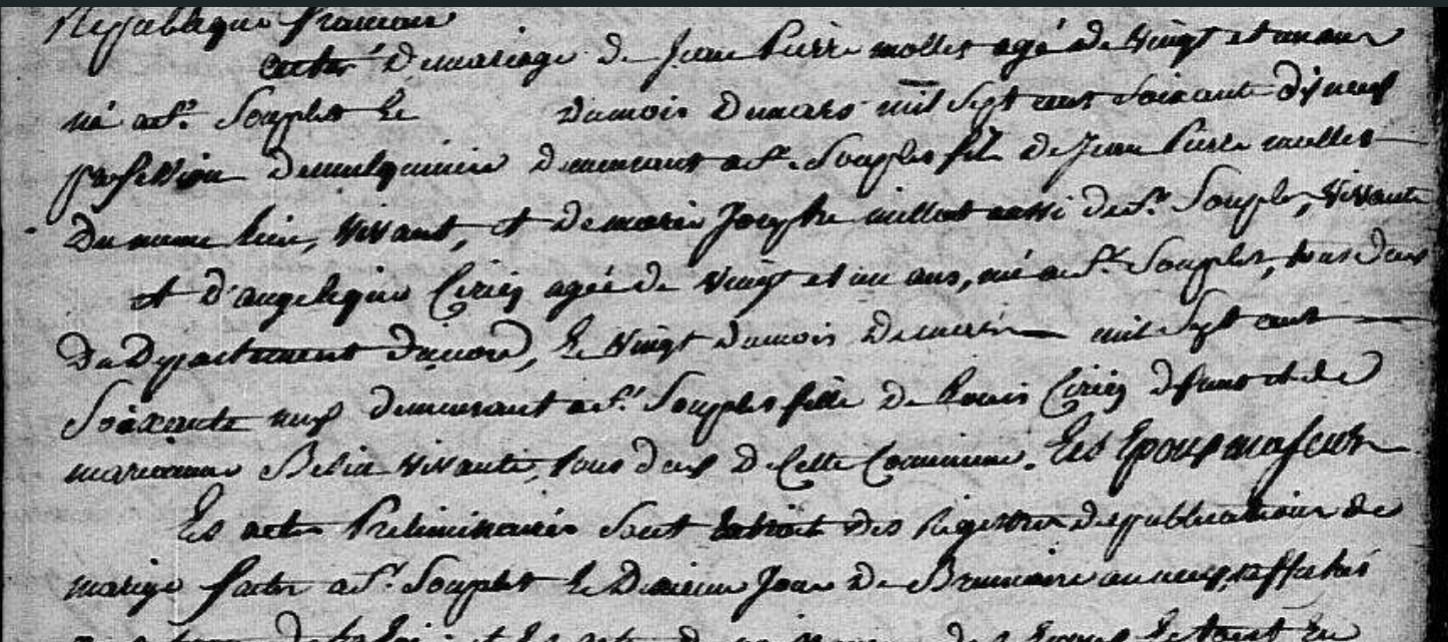 Republique francaise
acte de mariage de Jean Pierre mollet agé de Vingt et un ans
né a St. Souplet le du mois de mars mil Sept cent Soixante dix neuf
profession de mulquinier demeurant a St. Souplet fils de Jean Pierre mollet
du meme lieu, vivant, et de marie Josephe millot aussi de St. Souplet, vivante
et d'angelique Ciriez agée de Vingt et un ans, née a St. Souplet, tous deux
du Departement du nord, le Vingt du mois de mil Sept cent
Soixante neuf demeurant a St. Souplet fille de Louis Ciriez defunt et de
marianne vivante, tous deux de Cette Commune. Les Epoux majeurs
Les actes Preliminaires Sont extrait des Registres des publications de
mariage faites a St. Souplet le jour de Brumaire an neuf, affichés